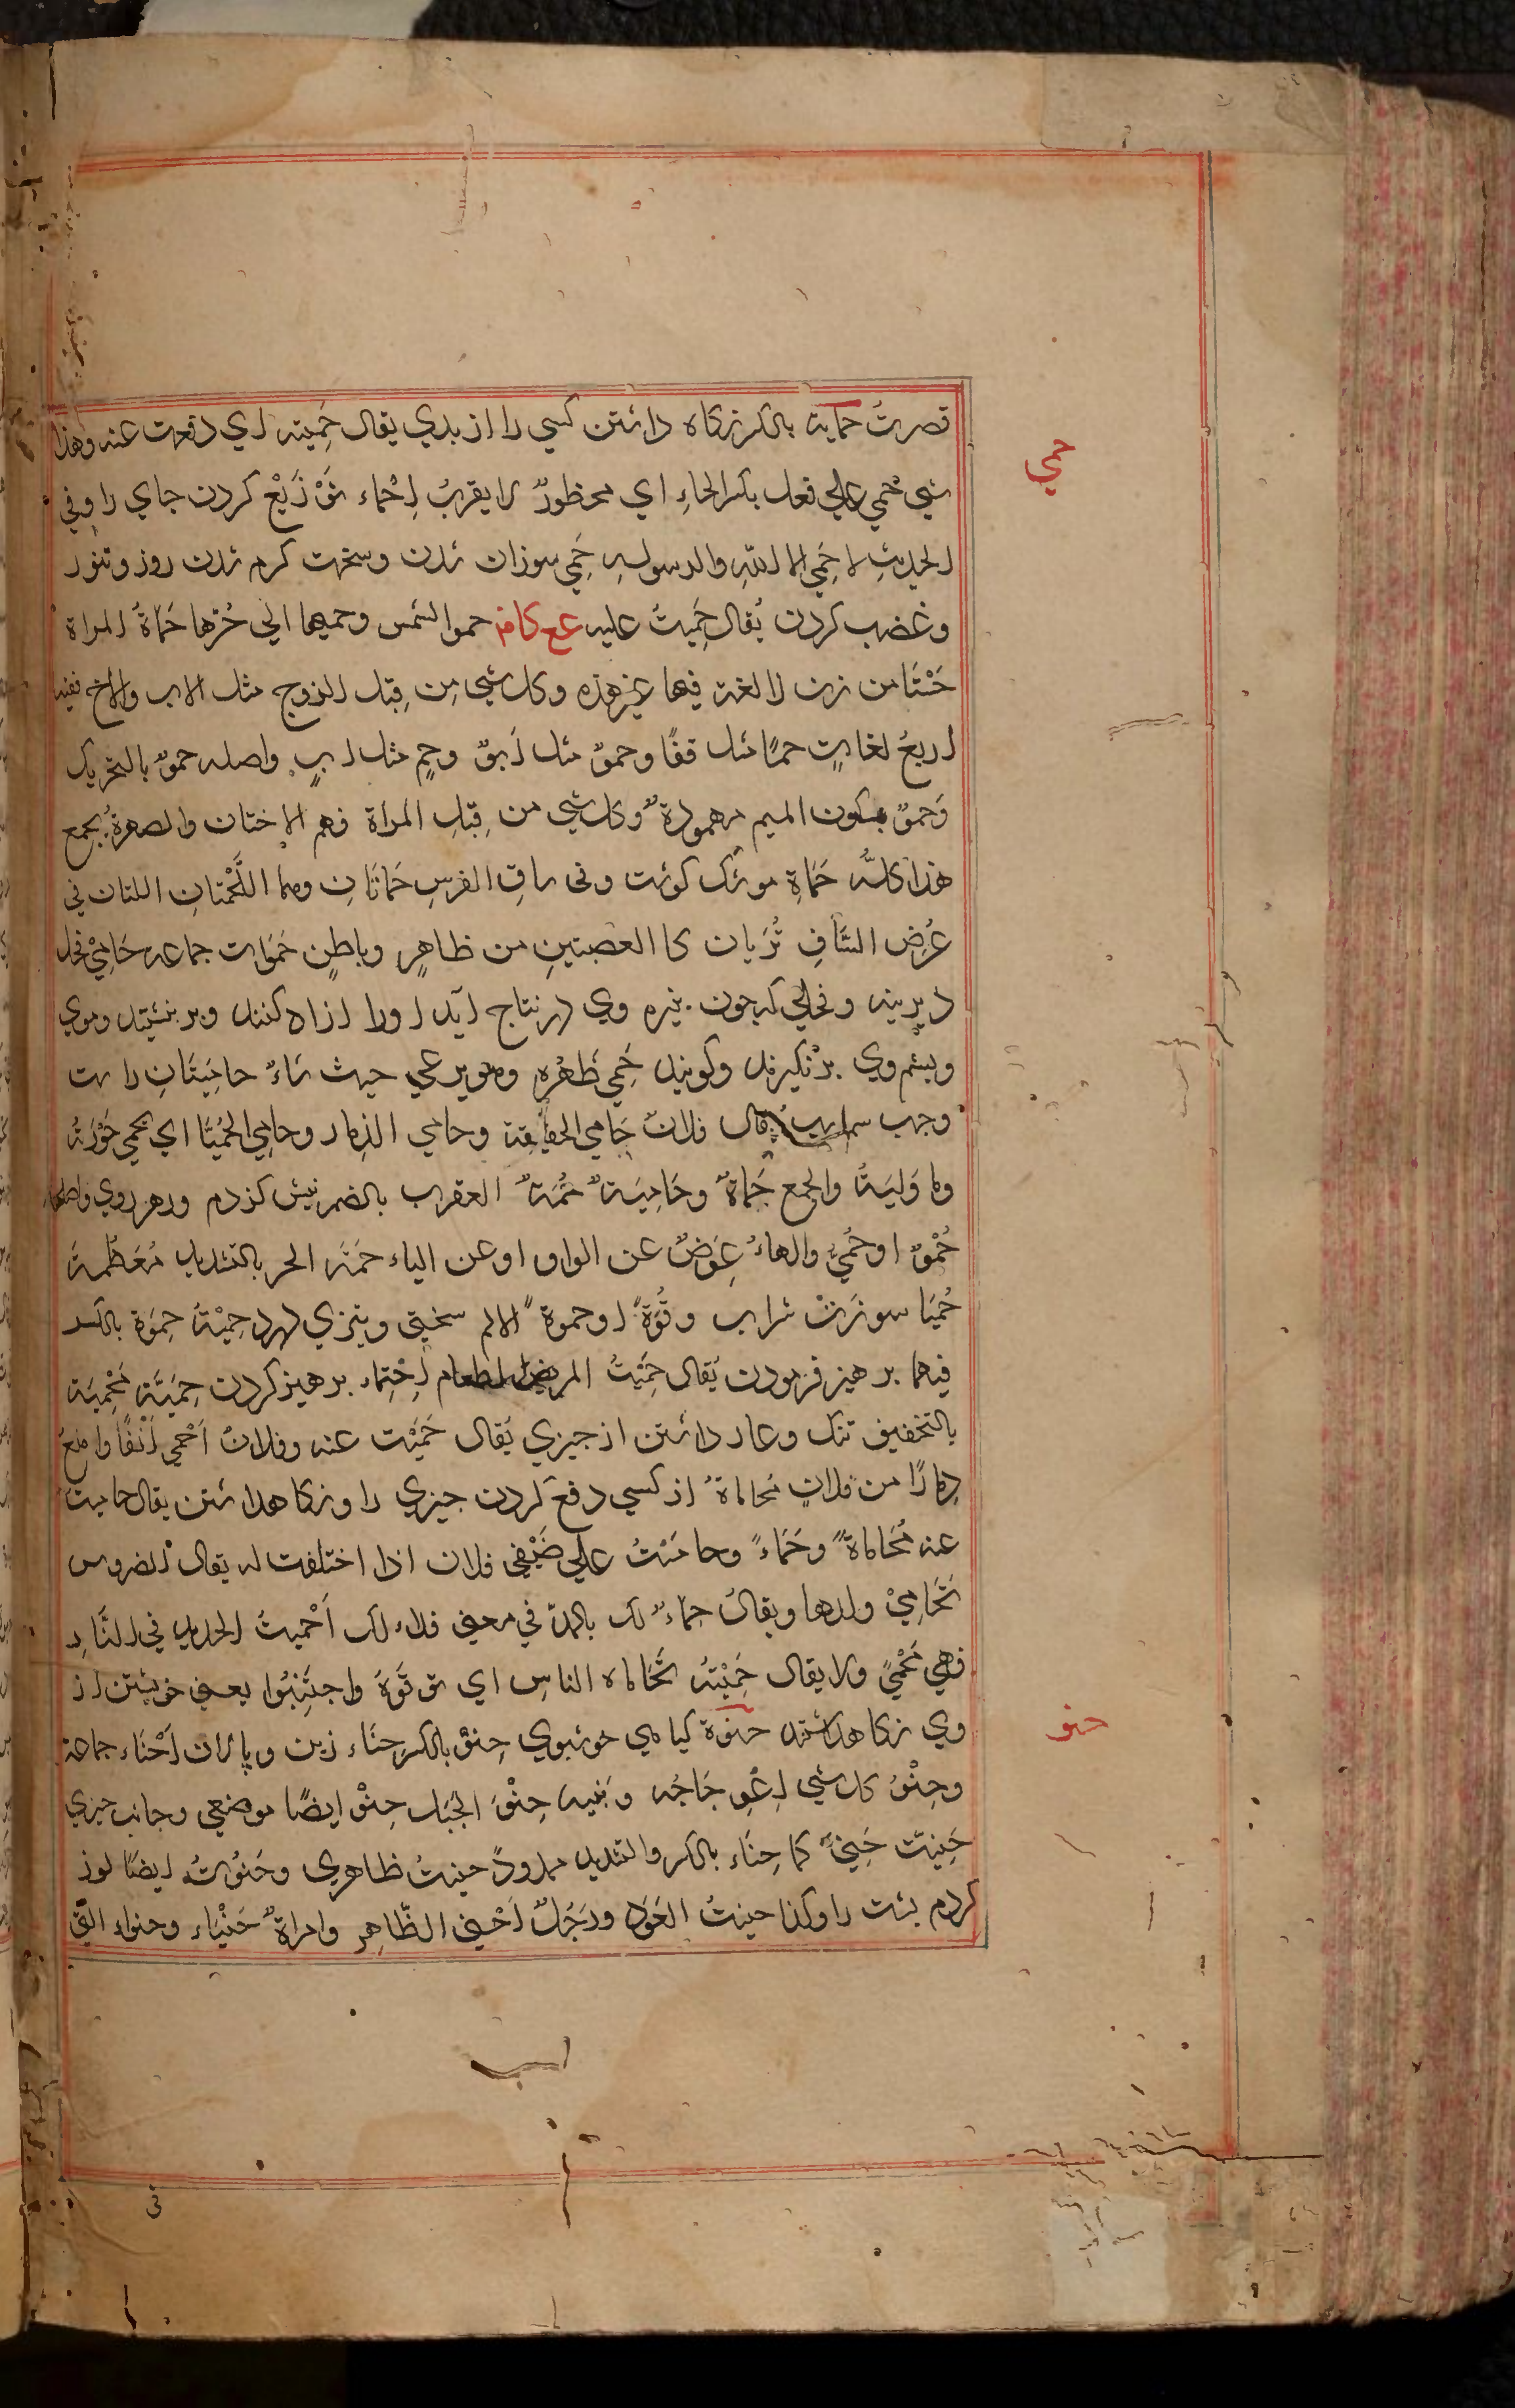 قصرتُ حماية بالكسر نكاه داشتن كسي را از بدي يقال حَمِيته اي دفعت عنه وهذا
حمي
شي حِمي علي فعل بكسر الحاءِ اي محظورٌ لا يقربُ اِحْماء قُرْ ذَيْعْ كردن جاي را وفي
الحديثِ لا حَمِي الا للّهِ والرسولهِ حَمي سوزان شدن وسخت كرم شدن روز وتنور
وغضب كردن يُقال حَمِيتُ عليه عع كافر حموالشمس وحميها اي حَرّها حَماةُ المراة
خَنتا من زن لا لغة فيها غير هذه وكل شي مِن قِبَل الزوج مثل الاب والاخ ففيه
اربع لغاتٍ حمًا مثل قفًا وحموٌ مثل اَبوٌ وحمٍ مثل ابٍ واصله حموٌ بالتحريك
وَحموٌ بسكون الميم مهموزةٌ وكل شي من قِبَلِ المراة فهم الاختان والصهرةُ يجمع
هذا كلَّه حَمَاةِ موشك كوشت وفى ساقِ الفرسِ حَماتَانِ وهما اللَّحْمتانِ اللتان في
عُرِضِ السَّاقِ تُرَيان كا العصبتينِ من ظاهرٍ وباطنٍ حَمَوات جماعه حَامِيْ فحل
ديرينه وفحلي كه چون نبيره وي در نتاج آيد اورا ازاد كنند وبر ننشينند وموي
وپشم وي برنكيرند وكويند حَمِي ظَهْرهِ وهو يرعي حيث شاءُ حامِيَتَانِ راست
وچپ سم اسب يقال فلانٌ حَامِي الحقيقة وحامي الذِمار وحامِي الحُمَيَّا اي يحمي حَوْزَتهُ
وما وَلِيَهُ والجمع حُماةٌ وحَامِيَةٌ حُمَةٌ العقرب بالضم نيش كژدم وزهر روي واصلها
حُمْوٌ او حُمَيٌ والهاءُ عِوَضٌ عن الواو او عن الياء حَمَّة الحر بالتشديد مُعَظَمهُ
حُمَيَا سورَتْ شراب وقُوَّةٌ اوحموة الالم سختي وتيزي درد حِمْيَةُ حِمَوة بالكسر
فيهما پرهيز فرمودن يُقال حَمَيْتُ المريضَ الطعام اِحْتِماء پرهيز كردن حِمَيَّة مَحْمِيَة
بالتخفيف ننك وعار داشتن از چيزي يُقال حَمَيْت عنه وفلانٌ اَحْمَي اَنْفًا وامنعُ
ذِمارًا من فلانٍ مُحاماةُ از كسي دفع كردن چيزي را ونكاهداشتن يقال حاميتُ
عنه مُحَاماةً وحَمَاءً وحامَيْتُ علي ضَيْفي فلان اذا احتلفت له يقال الضروس
تُحَامِيْ ولدها ويقالُ حماءٌ لك بالمدّ في معني فداء لك اَحْميتُ الحديد في النَّارِ
فهي مُحْمًي ولا يقال حَمِيْتهُ تَحَاماه الناس اي توقّوَهُ واجتَنِبُوا يعني خويشتن از
حنو
وي نكاهداشتند حنوة كياهي خوشبوي حِنْوٌ بالكسر حنَاء زين وپالان اَحْنَاء جماعة
وحِنْوُ كل شي اِعْوِجَاجُه وَبَنيه حِنْوَ الجَبَل حِنْو ايضًا موضعي وجانب چيزي
حَنِيَّت حَنِيٌّ كما حِنَاء بالكسر والتشديد ممدودً حنيتُ ظاهري وحَنَوْتُ ايضًا لوز
كردم پشت را وكذا حنيتُ العَوَد ورَجُلٌ اَحْنَي الظَّاهِر وامراةٌ حَنْيَاء وحنواء التي